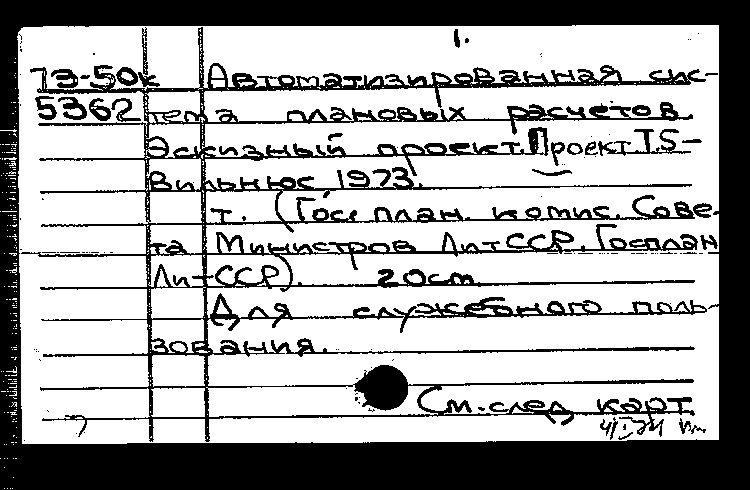 1.
73-50к Автоматизированная сис-
5362 тема плановых расчетов.
Эскизный проект. Проект TS-
Вильнюс, 1973.
т. (Гос. план. комис. Сове-
та Министров ЛитССР. Госплан
ЛитССР). 20см
Для служебного поль-
зования.
См. след. карт.